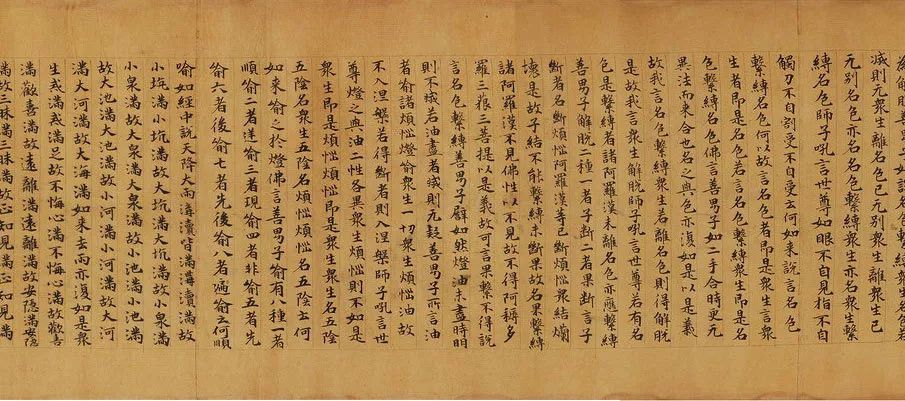 滅則无眾生離名色已无別眾生離眾生已
无別名色亦名名色繫縛眾生亦名眾生繫
縛名色師子吼言世尊如眼不自見指不自
觸刀不自割受不自受云何如來說言名色
繫縛名色何以故言名色者即是眾生言眾
生者即是名色若言名色繫縛眾生即是名
色繫縛名色佛言善男子如二手合時更无
異法而來合也名之與色亦復如是以是義
故我言名色繫縛眾生若離名色則得解脫
是故我言眾生解脫師子吼言世尊若有名
色是繫縛者諸阿羅漢未離名色亦應繫縛
善男子解脫二種一者子斷二者果斷言子
斷者名斷煩惱阿羅漢等已斷煩惱眾結爛
壞是故子結不能繫縛未斷果故名果繫縛
諸阿羅漢不見佛性以不見故不得阿耨多
羅三藐三菩提以是義故可言果繫不得說
言名色繫縛善男子譬如然燈油未盡時明
則不滅若油盡者滅則无疑善男子所言油
者喻諸煩惱燈喻眾生一切眾生煩惱油故
不入涅槃若得斷者則入涅槃師子吼言世
尊燈之與油二性各異眾生煩惱則不如是
眾生即是煩惱煩惱即是眾生眾生名五陰
五陰名眾生五陰名煩惱煩惱名五陰云何
如來喻之於燈佛言善男子喻有八種一者
順喻二者逆喻三者現喻四者非喻五者先
喻六者後喻七者先後喻八者遍喻云何順
喻如經中說天降大雨溝瀆皆滿溝瀆滿故
小坑滿小坑滿故大坑滿大坑滿故小泉滿
小泉滿故大泉滿大泉滿故小池滿小池滿
故大池滿大池滿故小河滿小河滿故大河
滿大河滿故大海滿如來法雨亦復如是眾
生戒滿戒滿足故不悔心滿不悔心滿故歡喜
滿歡喜滿故遠離滿遠離滿故安隱滿安隱
滿故三昧滿三昧滿故正知見滿正知見滿